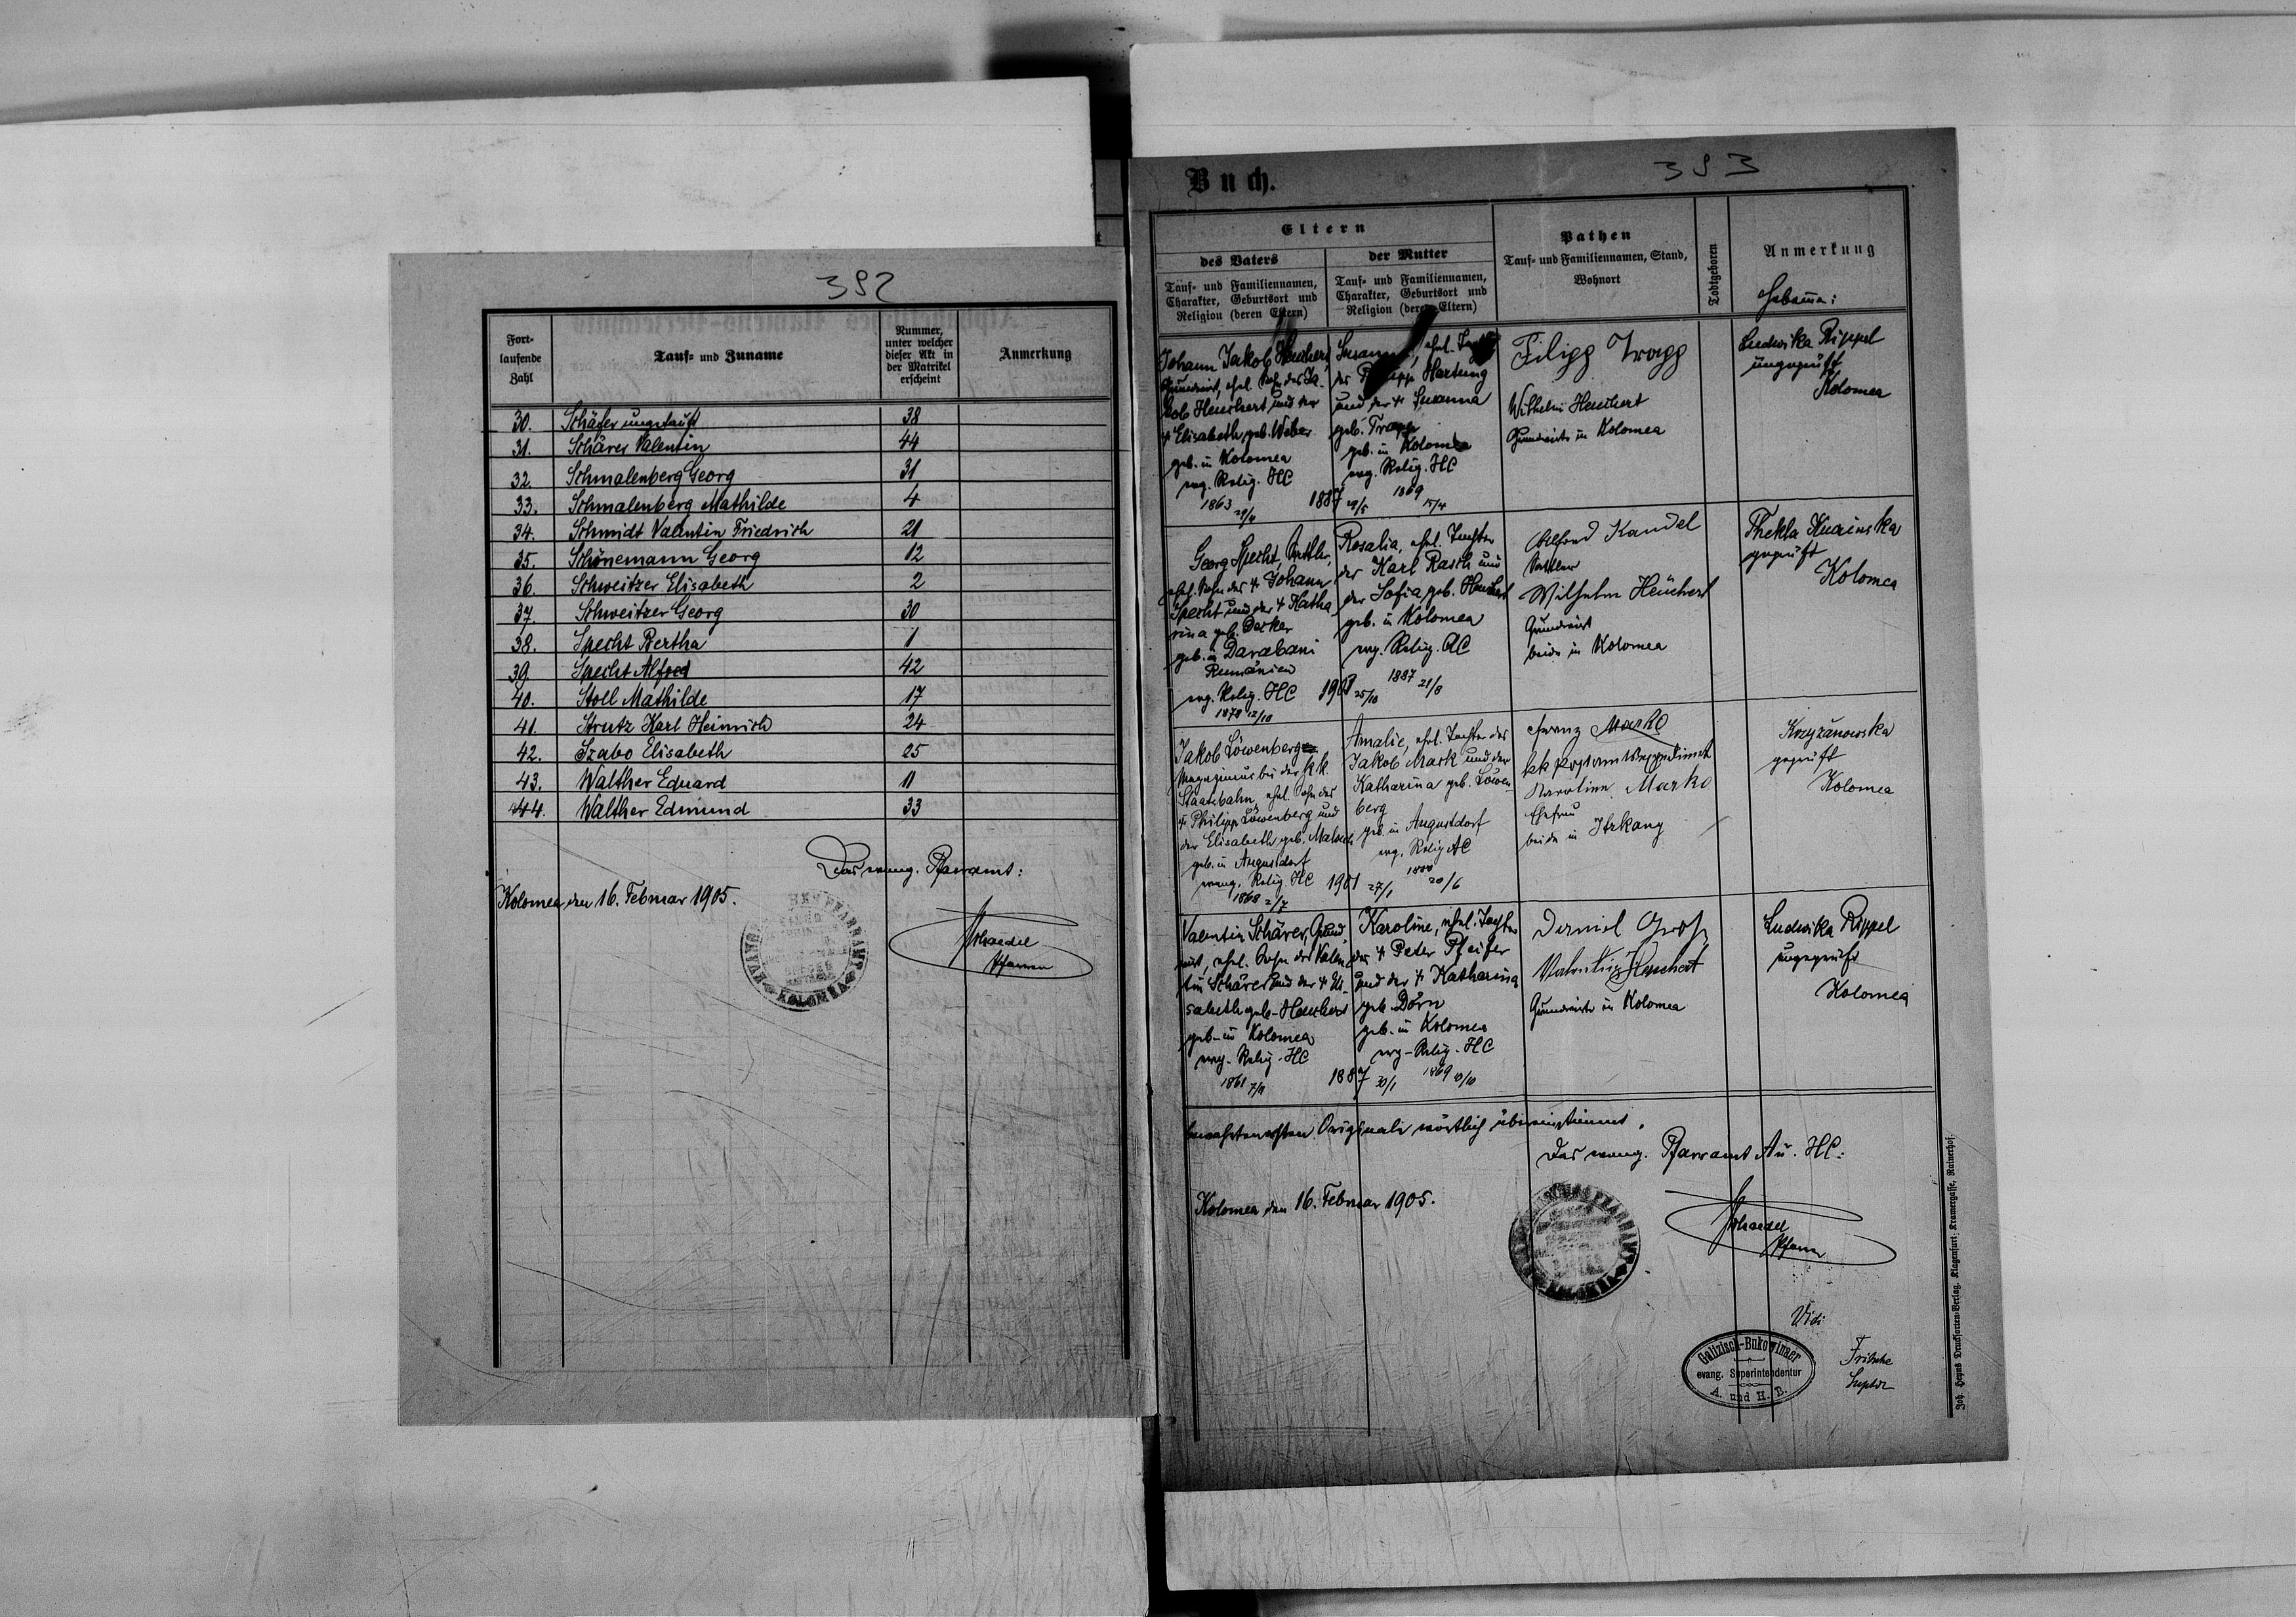 392
Fort-
laufende
Zahl
Tauf- und Zuname
Nummer,
unter welcher
dieser Akt in
der Matrikel
erscheint
Anmerkung
30. Schäfer ungetauft 38
31. Schärer Valentin 44
32. Schmalenberg Georg 31
33. Schmalenberg Mathilde 4
34. Schmidt Valentin Friedrich 21
35. Schönemann Georg 12
36. Schweitzer Elisabeth 2
37. Schweitzer Georg 30
38. Specht Bertha 1
39. Specht Alfred 42
40. Stoll Mathilde 17
41. Strutz Karl Heinrich 24
42. Szabo Elisabeth 25
43. Walther Eduard 11
44. Walther Edmund 33
Das evang. Pfarramt:
Kolomea, den 16. Februar 1905.
KOLOMEA
Pfarrer
Buch.
393
Eltern
des Vaters
Tauf- und Familiennamen,
Charakter, Geburtsort und
Religion (deren Eltern)
der Mutter
Tauf- und Familiennamen,
Charakter, Geburtsort und
Religion (deren Eltern)
Pathen
Tauf- und Familiennamen, Stand,
Wohnort
Todtgeboren
Anmerkung
Johann Jakob Heuchert,
Grundwirt, ehel. Sohn des Ja-
kob Heuchert und der
† Elisabeth geb. Weber
geb. in Kolomea
evg. Relig. HC
1863 29/4
1887 29/5
Susanna, ehel. Tochter
des Philipp Hartung
und der † Susanna
geb. Trapp
geb. in Kolomea
evg. Relig. HC
1869 15/4
Filipp Trapp
Wilhelm Heuchert
Grundwirte in Kolomea
Ludwika Rippel
ungeprüft
Kolomea
Georg Specht, Sattler,
ehel. Sohn des † Johann
Specht und der † Katha
rina geb. Decker
geb. in Darabani
Rumänien
evg. Relig. HC
1878 12/10
25/10
Rosalia, ehel. Tochter
des Karl Rasch und
der Sofia geb. Heuchert
geb. in Kolomea
evg. Relig. AC
1887 21/8
Alfred Kandel
Sattler
Wilhelm Heuchert
Grundwirt
beide in Kolomea
Thekla
geprüft
Kolomea
Jakob Löwenberg
bei der kk.
Staatsbahn, ehel. Sohn des
† Philipp Löwenberg und
der Elisabeth geb.
geb. in Augustdorf
evang. Relig. HC
1868 2/7
1901 27/1
Amalie, ehel. Tochter des
Jakob Mark und der
Katharina geb. Löwen-
berg
geb. in Augustdorf
evg. Relig AC
1880 20/6
Franz Marko
kk
Karoline Marko
Ehefrau
beide in
Krzyżanowska
geprüft
Kolomea
Valentin Schärer, Grund-
wirt, ehel. Sohn des Valen-
tin Schärer und der † Eli-
sabeth geb. Heuchert
geb. in Kolomea
evg. Relig. HC
1861 7/11
1887 30/1
Karoline, ehel. Tochter
des † Peter Pfeifer
und der † Katharina
geb. Dörn
geb. in Kolomea
evg. Relig. HC
1869 10/10
Daniel Groß
Valentin Heuchert
Grundwirte in Kolomea
Ludwika Rippel
ungeprüft
Kolomea
Originale wörtlich übereinstimmt.
Das evang. Pfarramt A u. HC:
Kolomea, den 16. Februar 1905.
Pfarrer
Vidi
Galizisch-Bukowinaer
evang. Superintendentur
A. und H. B.
Fritsche
Suptdt
Joh. Heyns Drucksorten-Verlag, Klagenfurt, Kramergasse, Rainerhof.